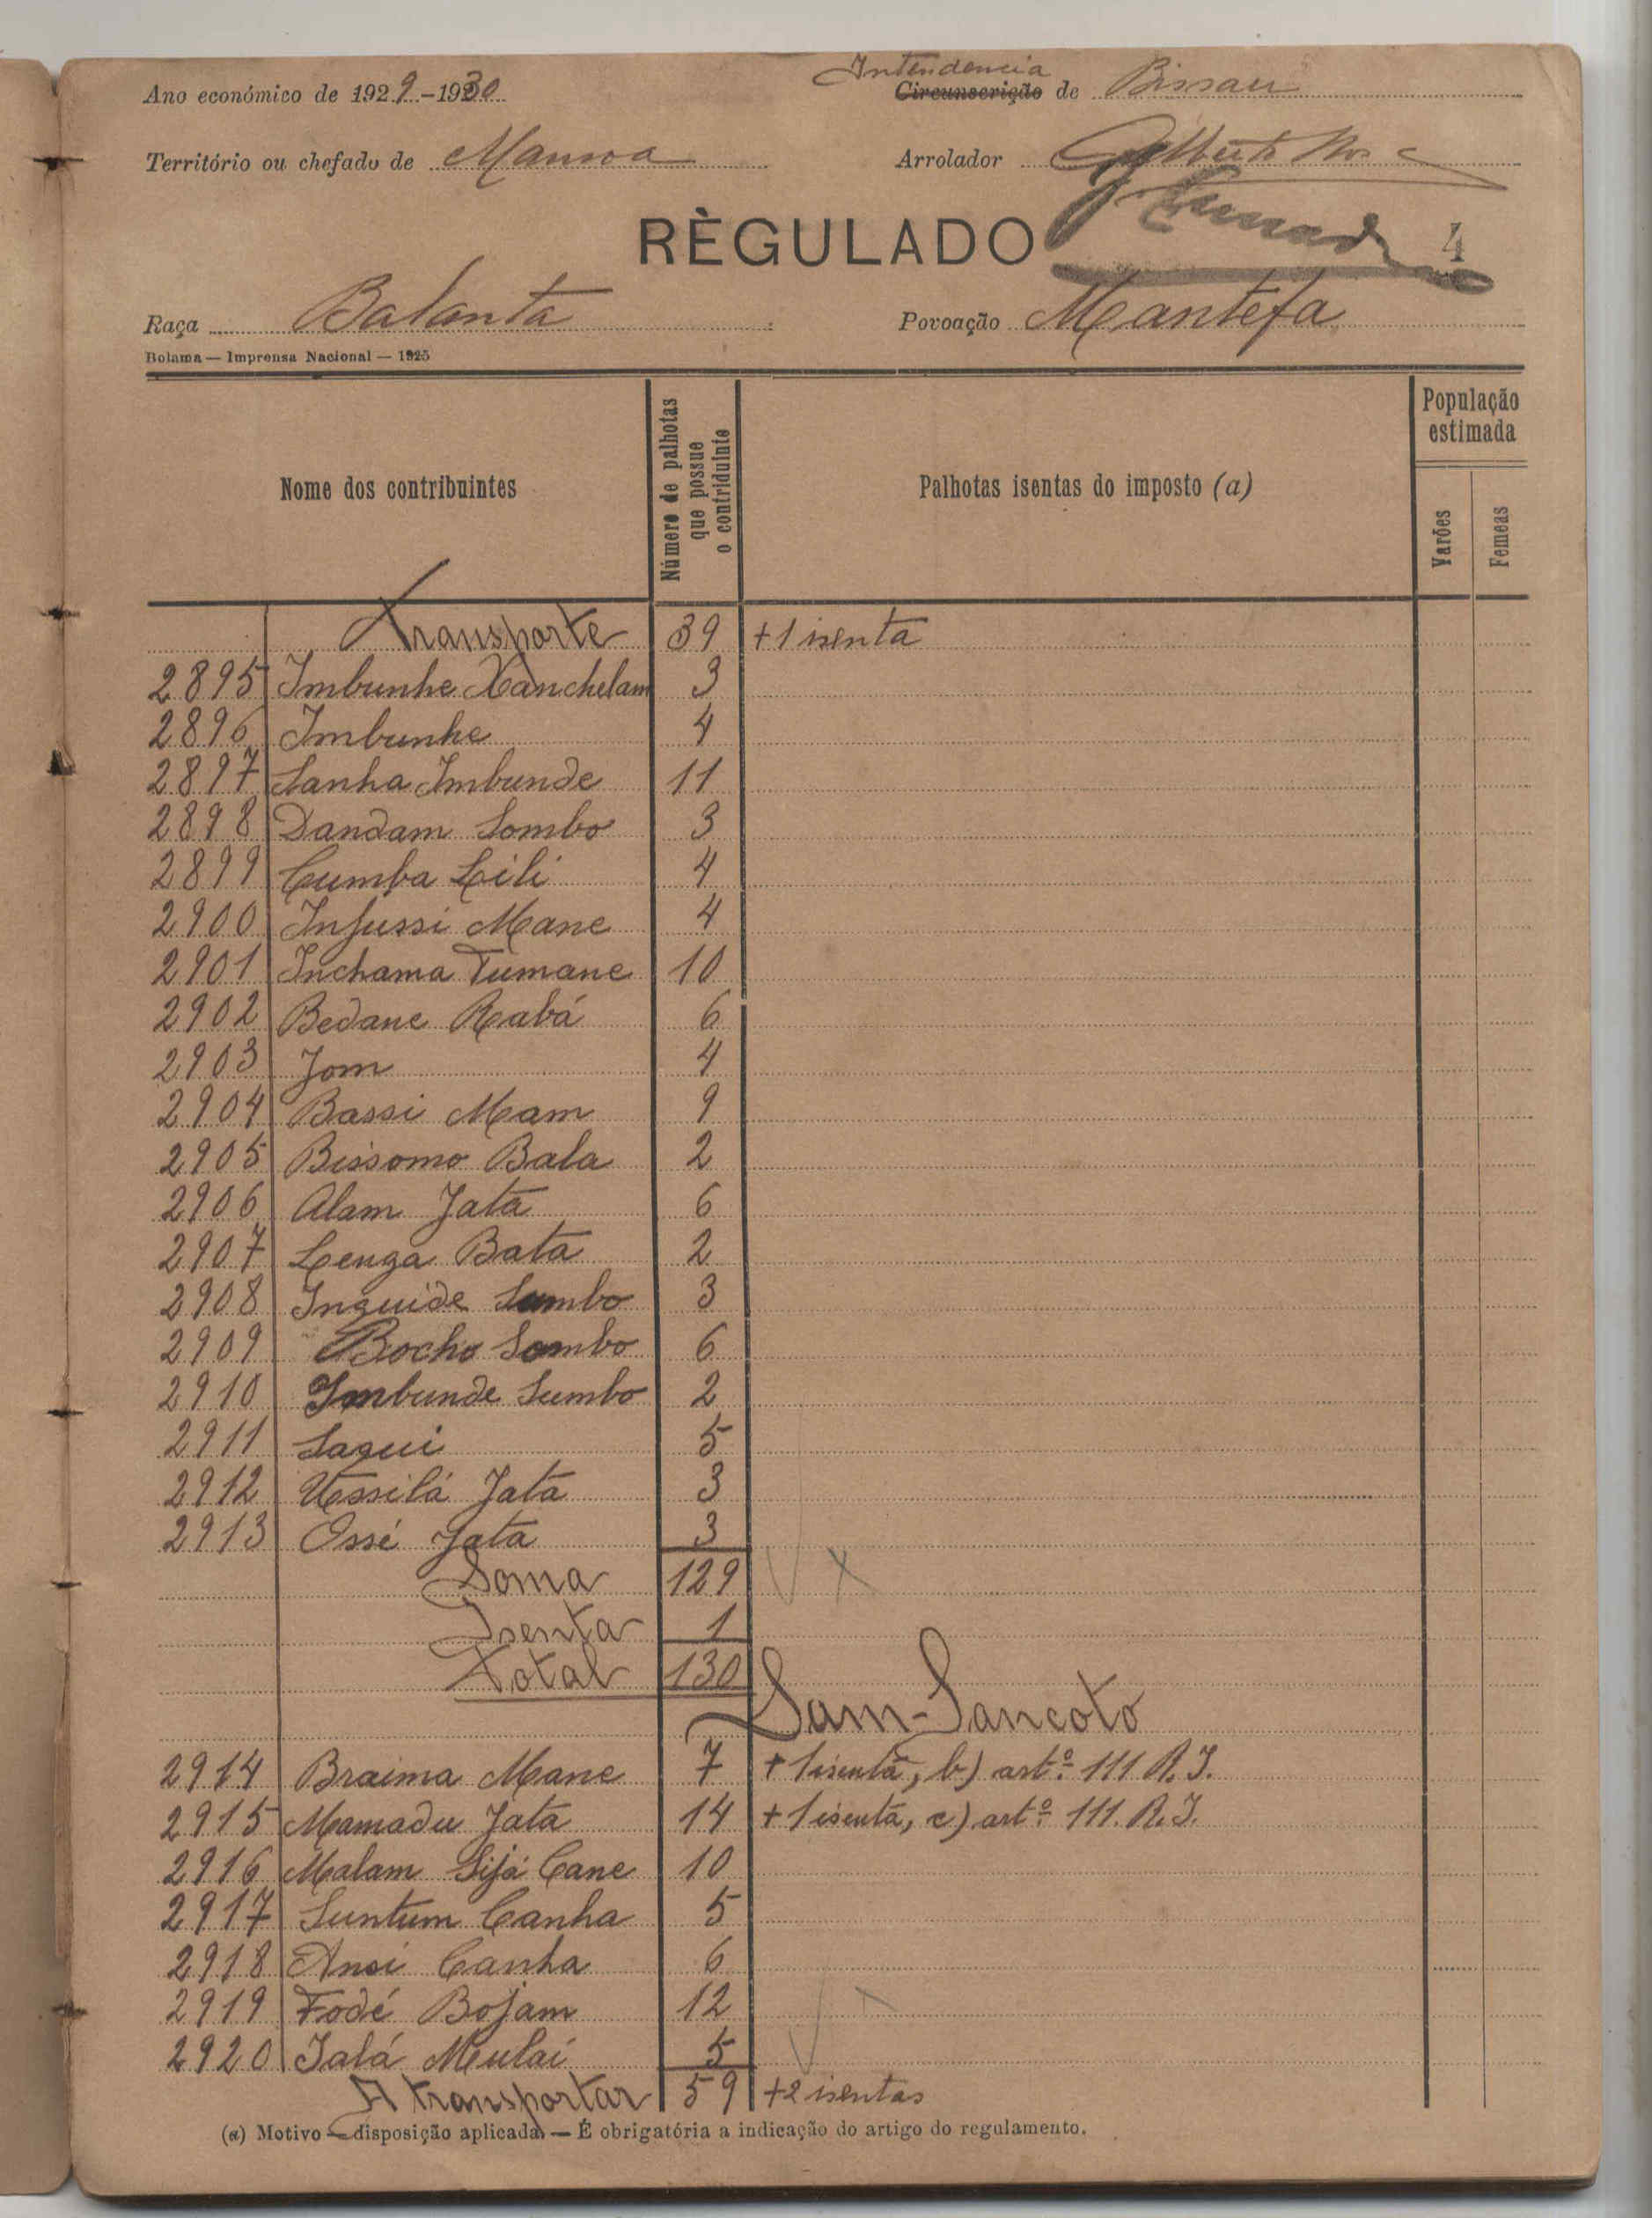 Ano económico de 1929-1930
Intendencia
Circunscrição de Bissau
Território ou chefado de Mansoa
Arrolador
RÈGULADO
4
Raça Balanta
Povoação Mantefa
Bolama — Imprensa Nacional — 1925
Nome dos contribuintes
Número de palhotas que possue o contriduinte
Palhotas isentas do imposto (a)
População estimada
Varões
Femeas
Transporte 39 +1 isenta
2895 Imbunhe Xanchelam 3
2896 Imbunhe 4
2897 Sanha Imbunde 11
2898 Dandam Sombo 3
2899 Cumba Lili 4
2900 Infussi Mane 4
2901 Inchama Tumane 10
2902 Bedane Rabá 6
2903 Jom 4
2904 Bassi Mam 9
2905 Bissomo Bala 2
2906 Alam Jata 6
2907 Lenga Bata 2
2908 Inguide Sambo 3
2909 Bocho Sombo 6
2910 Imbunde Sumbo 2
2911 Sagui 5
2912 Ussilá Jata 3
2913 Ossé Jata 3
Soma 129
Isenta 1
Total 130
Sam-Sancoto
2914 Braima Mane 7 +1 isenta, b) artº 111 R.I.
2915 Mamadu Jata 14 +1 isenta, c) artº 111. R.I.
2916 Malam Sijá Cane 10
2917 Suntum Canha 5
2918 Ansi Canha 6
2919 Fodé Bojam 12
2920 Ialá Mulai 5
A transportar 59 +2 isentas
(a) Motivo — disposição aplicada — É obrigatória a indicação do artigo do regulamento.